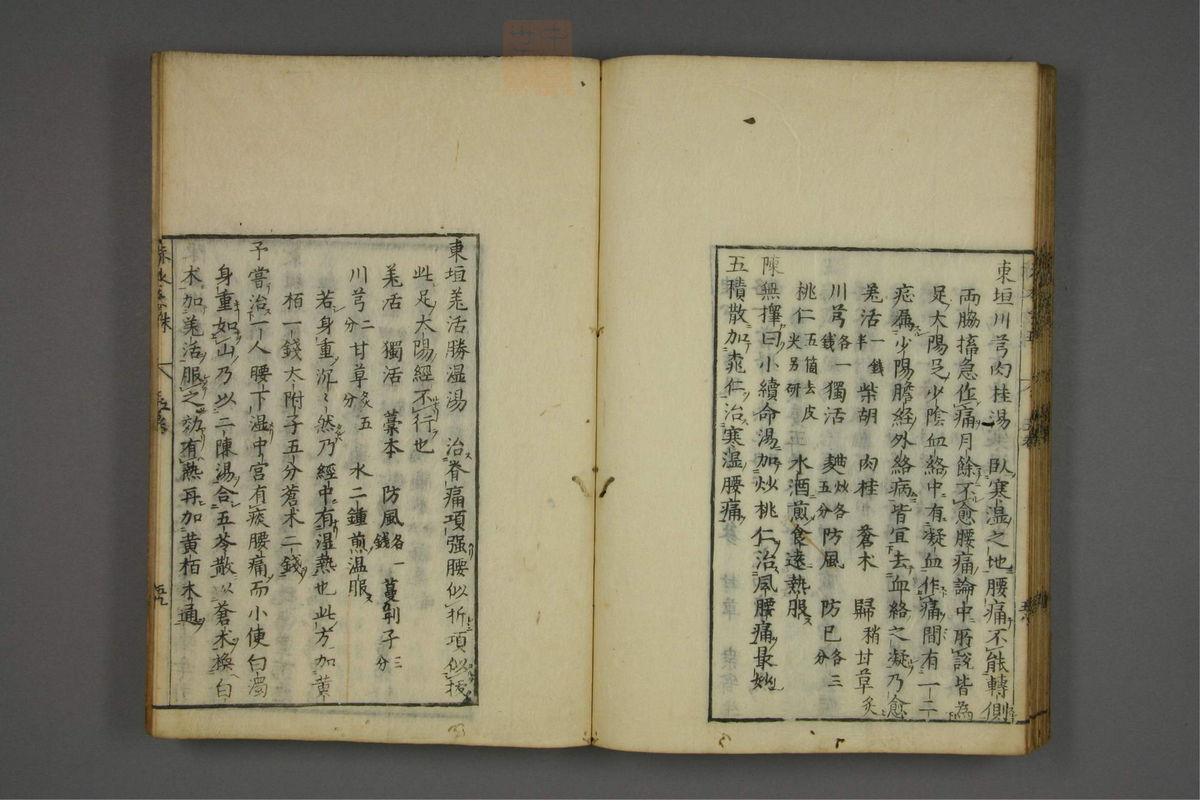 東垣川芎肉桂湯 臥寒湿之地腰痛不能轉側
兩脇搐急作痛月餘不愈腰痛論中所説皆為
足太陽足少陰血絡中有凝血作痛間有一二
症属少陽膽經外絡病皆宜去血絡之凝乃愈
羗活一錢半 柴胡 肉桂 蒼术 歸稍 甘草炙
川芎各一錢 獨活 麯炒各五分 防風 防已各三分
桃仁五箇去皮尖另研 水酒煎食遠熱服
陳無擇曰小續命湯加炒桃仁治風腰痛最妙
五積散加桃仁治寒湿腰痛
東垣羗活勝湿湯 治脊痛項强腰似折項似拔
此足太陽經不行也
羗活 獨活 藁本 防風各一錢 蔓荆子三分
川芎二分 甘草炙五分 水二鍾煎温服
若身重沉々然乃經中有湿熱也此方加黄
栢一錢太附子五分蒼术二錢
予嘗治一人腰下湿中宮有痰腰痛而小便白濁
身重如山乃以二陳湯合五苓散以蒼术換白
术加羗活服之効有熱再加黄栢木通